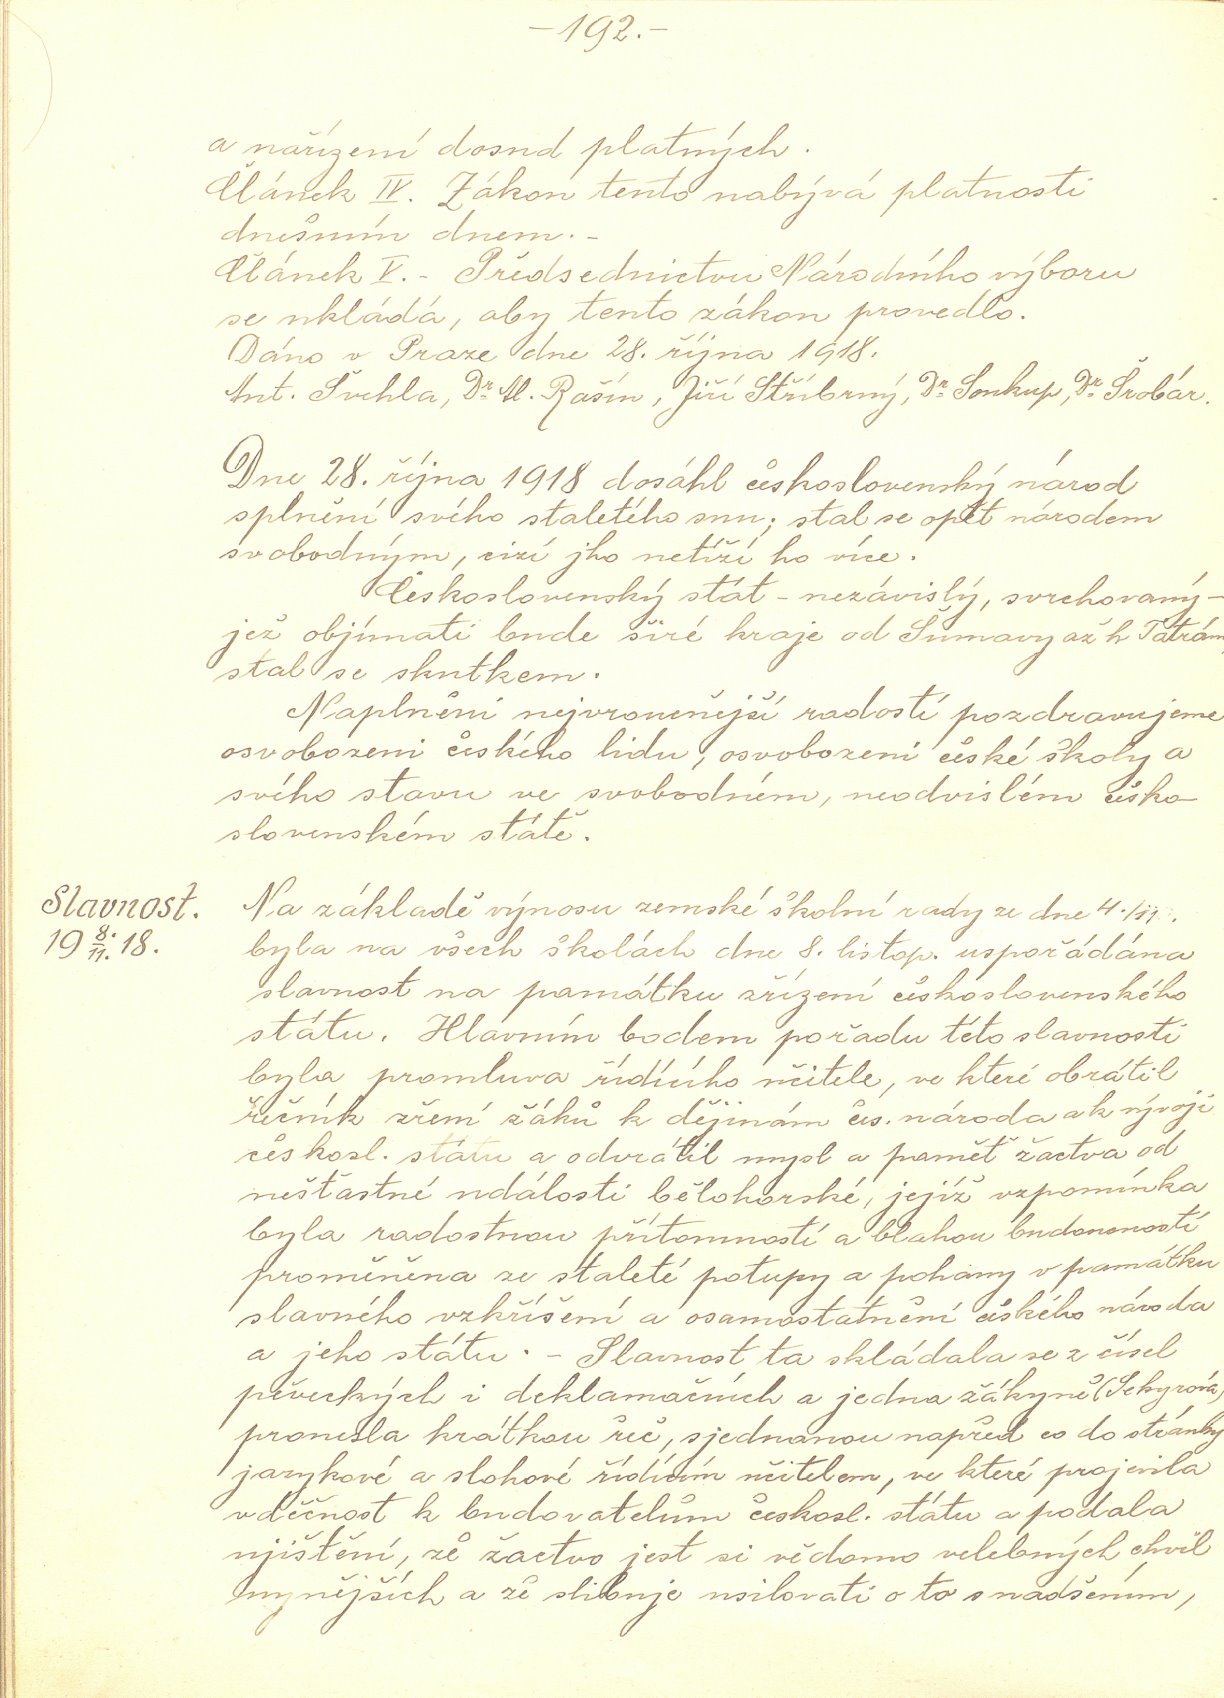 -192.-
a nařízení dosud platných.
Článek IV. Zákon tento nabývá platnosti
dnešním dnem.-
Článek V.- Předsednictvu Národního výboru
se ukládá, aby tento zákon provedlo.
Dáno v Praze dne 28. října 1918.
Ant. Švehla, Dr. Al. Rašín, Jiří Stříbrný, Dr. Soukup, Dr. Šrobár.
Dne 28. října 1918 dosáhl československý národ
splnění svého staletého snu; stal se opět národem
svobodným, cizí jho netíží ho více.
Československý stát - nezávislý, svrchovaný -
jež objímati bude širé kraje od Šumavy až k Tatrám,
stal se skutkem.
Naplněni nejvroucnější radostí pozdravujeme
osvobození českého lidu, osvobození české školy a
svého stavu ve svobodném, neodvislém česko-
slovenském státě.
Slavnost.
19 8./11. 18.
Na základě výnosu zemské školní rady ze dne 4./11.
byla na všech školách dne 8. listop. uspořádána
slavnost na památku zřízení československého
státu. Hlavním bodem pořadu této slavnosti
byla promluva řídícího učitele, ve které obrátil
řečník zření žáků k dějinám čes. národa a k vývoji
českosl. státu a odvrátil mysl a paměť žactva od
nešťastné události bělohorské, jejíž vzpomínka
byla radostnou přítomností a blahou budoucností
proměněna ze staleté potupy a pohany v památku
slavného vzkříšení a osamostatnění českého národa
a jeho státu. - Slavnost ta skládala se z čísel
pěveckých i deklamačních a jedna žákyně (Sekyrová)
pronesla krátkou řeč, sjednanou napřed co do stránky
jazykové a slohové řídícím učitelem, ve které projevila
vděčnost k budovatelům českosl. státu a podala
ujištění, že žactvo jest si vědomo velebných chvil
nynějších a že slibuje usilovati o to s nadšením,